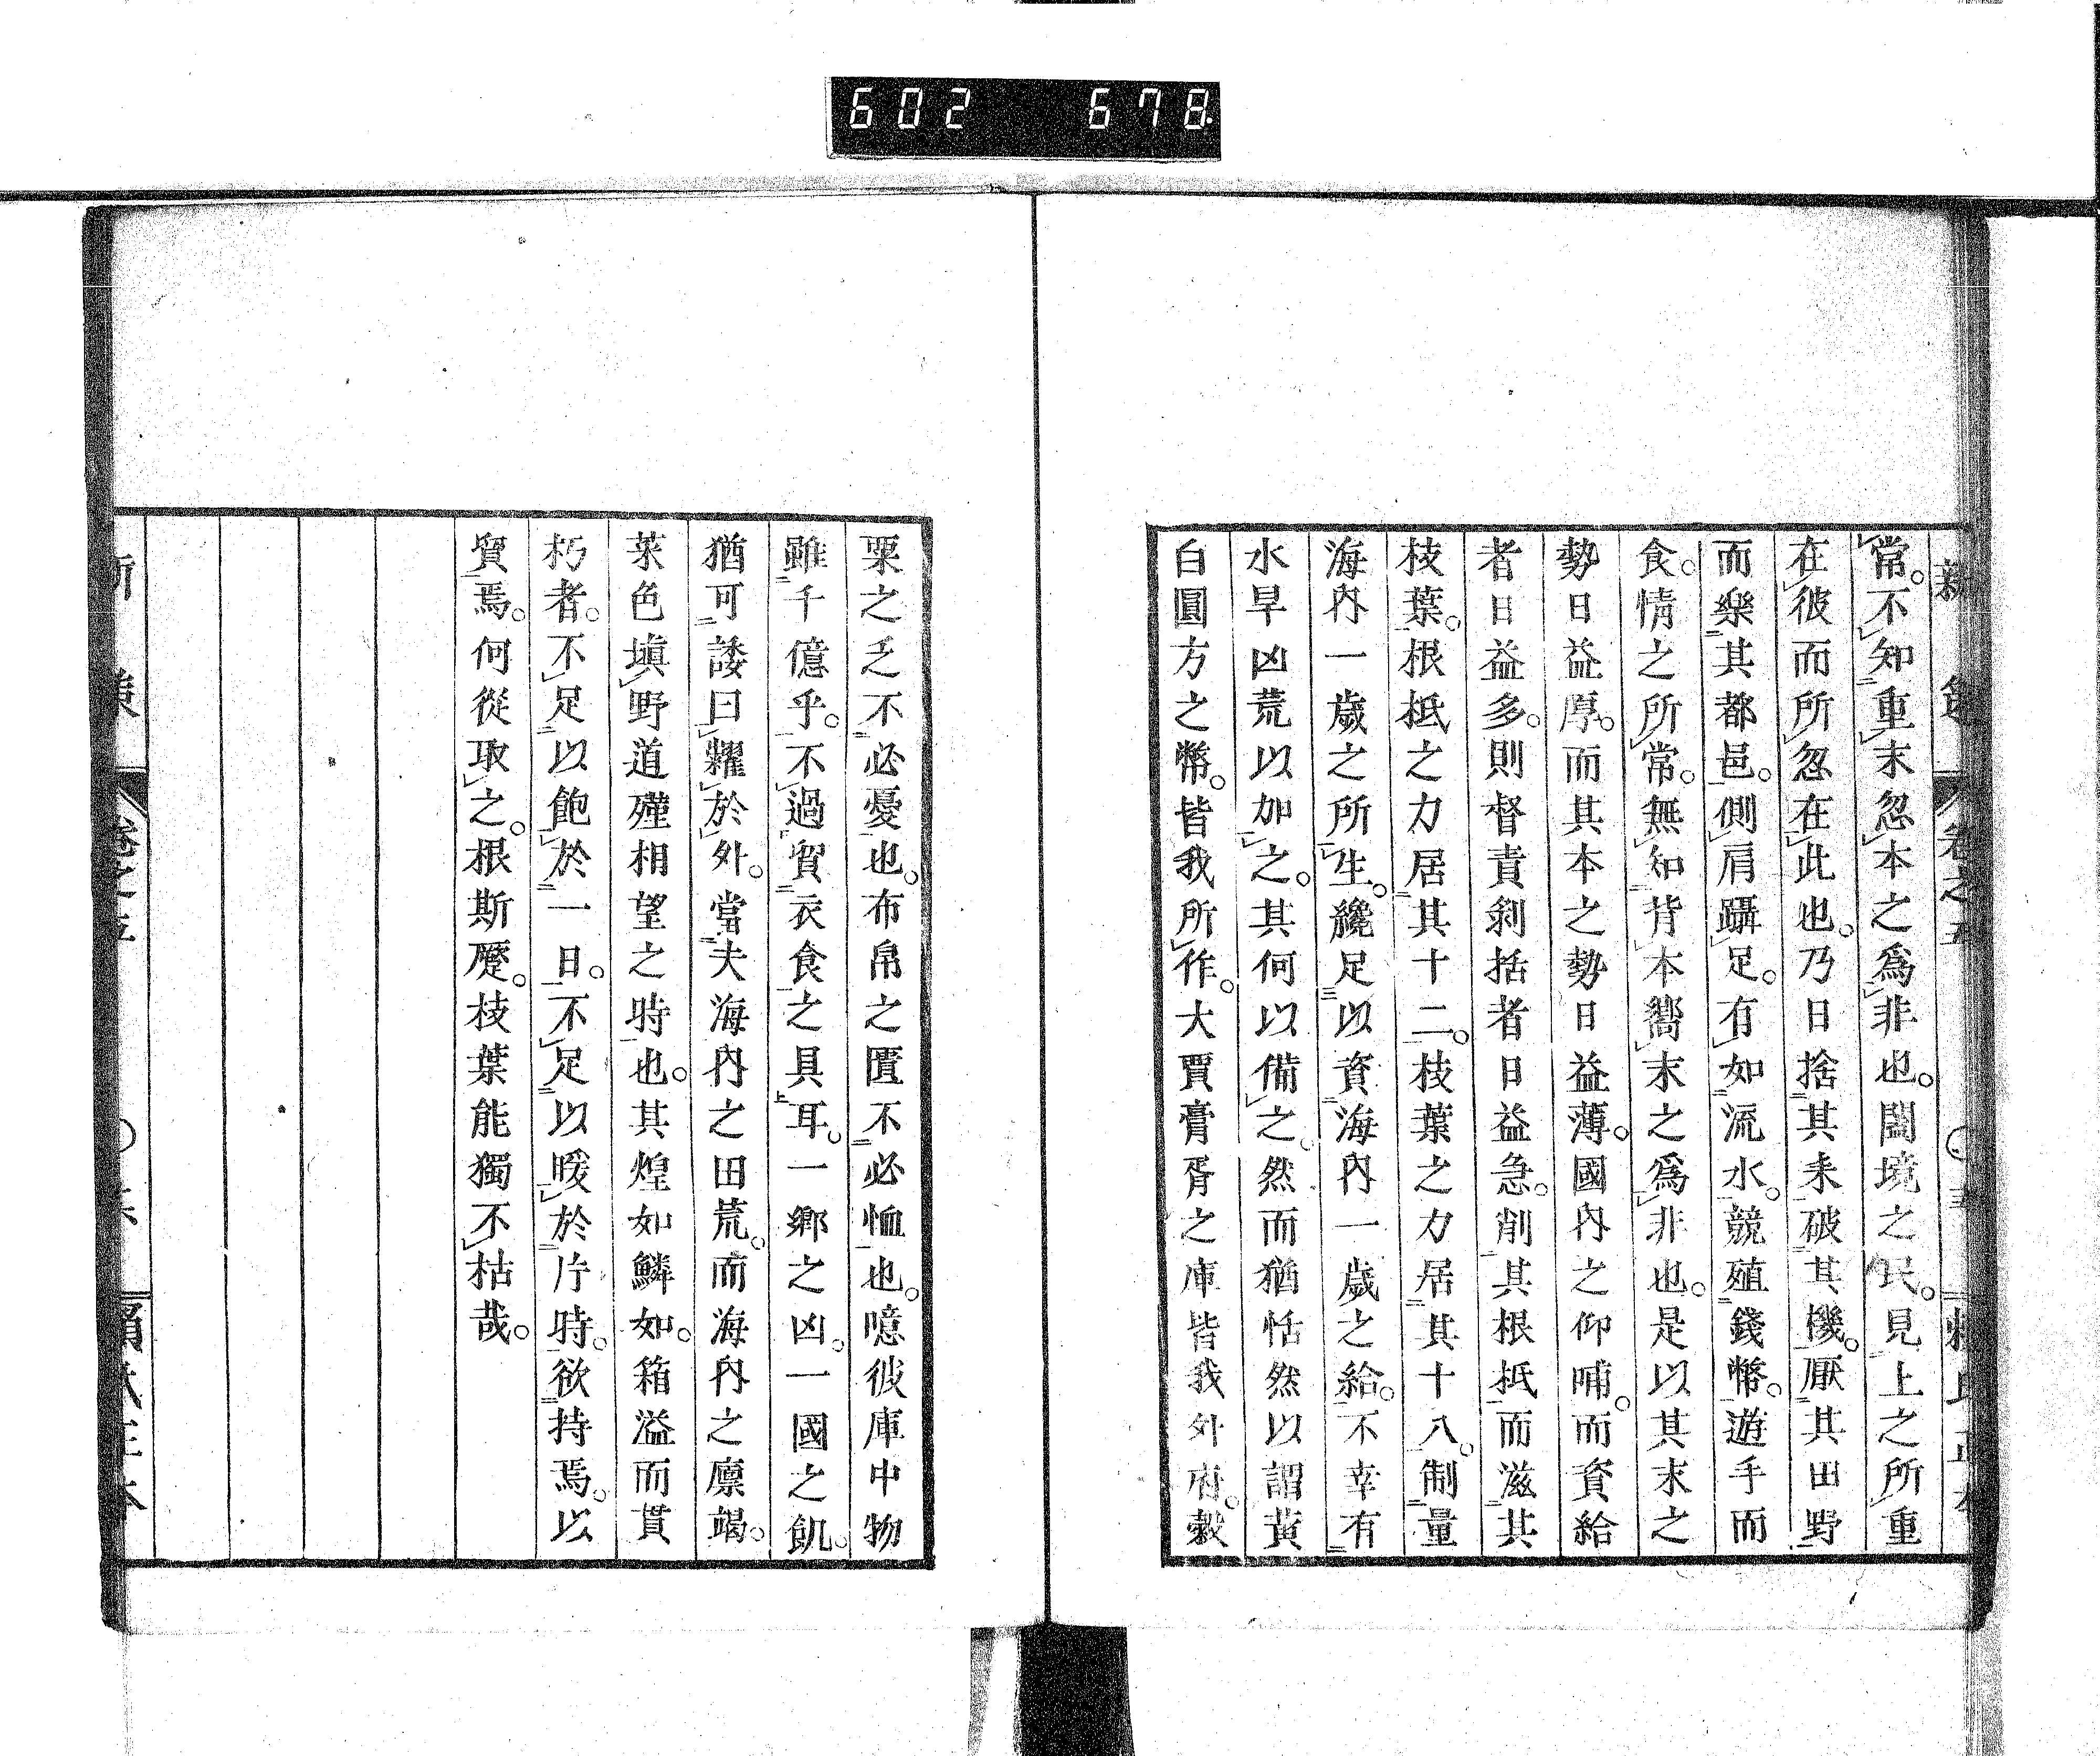 602 678.
新策 卷之五 ○五 賴氏正本
常。不知重末忽本之爲非也。闔境之民。見上之所重
在彼而所忽在此也。乃日捨其耒破其機。厭其田野
而樂其都邑。側肩躡足。有如流水。競殖錢幣。遊手而
食。情之所常。無知背本嚮末之爲非也。是以其末之
勢日益厚。而其本之勢日益薄。國內之仰哺。而資給
者日益多。則督責剥括者日益急。削其根柢而滋其
枝葉。根柢之力居其十二。枝葉之力居其十八。制量
海內一歲之所生。纔足以資海內一歲之給。不幸有
水旱凶荒以加之。其何以備之。然而猶恬然以謂黃
白圓方之幣。皆我所作。大賈膏胥之庫皆我外府。穀
粟之乏不必憂也。布帛之匱不必恤也。噫彼庫中物
雖千億乎。不過貿衣食之具耳。一鄉之凶。一國之飢。
猶可諉曰糶於外。當夫海內之田荒。而海內之廩竭。
菜色塡野道殣相望之時也。其煌如鱗如。箱溢而貫
朽者。不足以飽於一日。不足以暖於片時。欲持焉。以
貿焉。何從取之。根斯蹙。枝葉能獨不枯哉。
新策 卷之五 賴氏正本